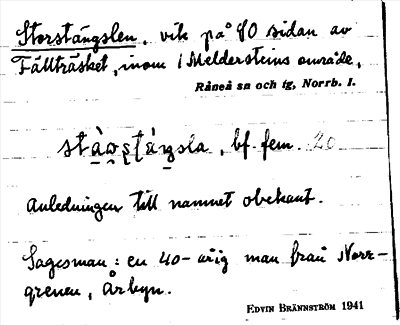 Storstängslen, vik på SO sidan av
Fällträsket, inom i Meldersteins område,
Råneå sn och tg, Norrb. l.
bf. fem. 20
Anledningen till namnet obekant.
Sagesman: en 40-årig man från Norr-
grenen, Årbyn.
EDVIN BRÄNNSTRÖM 1941